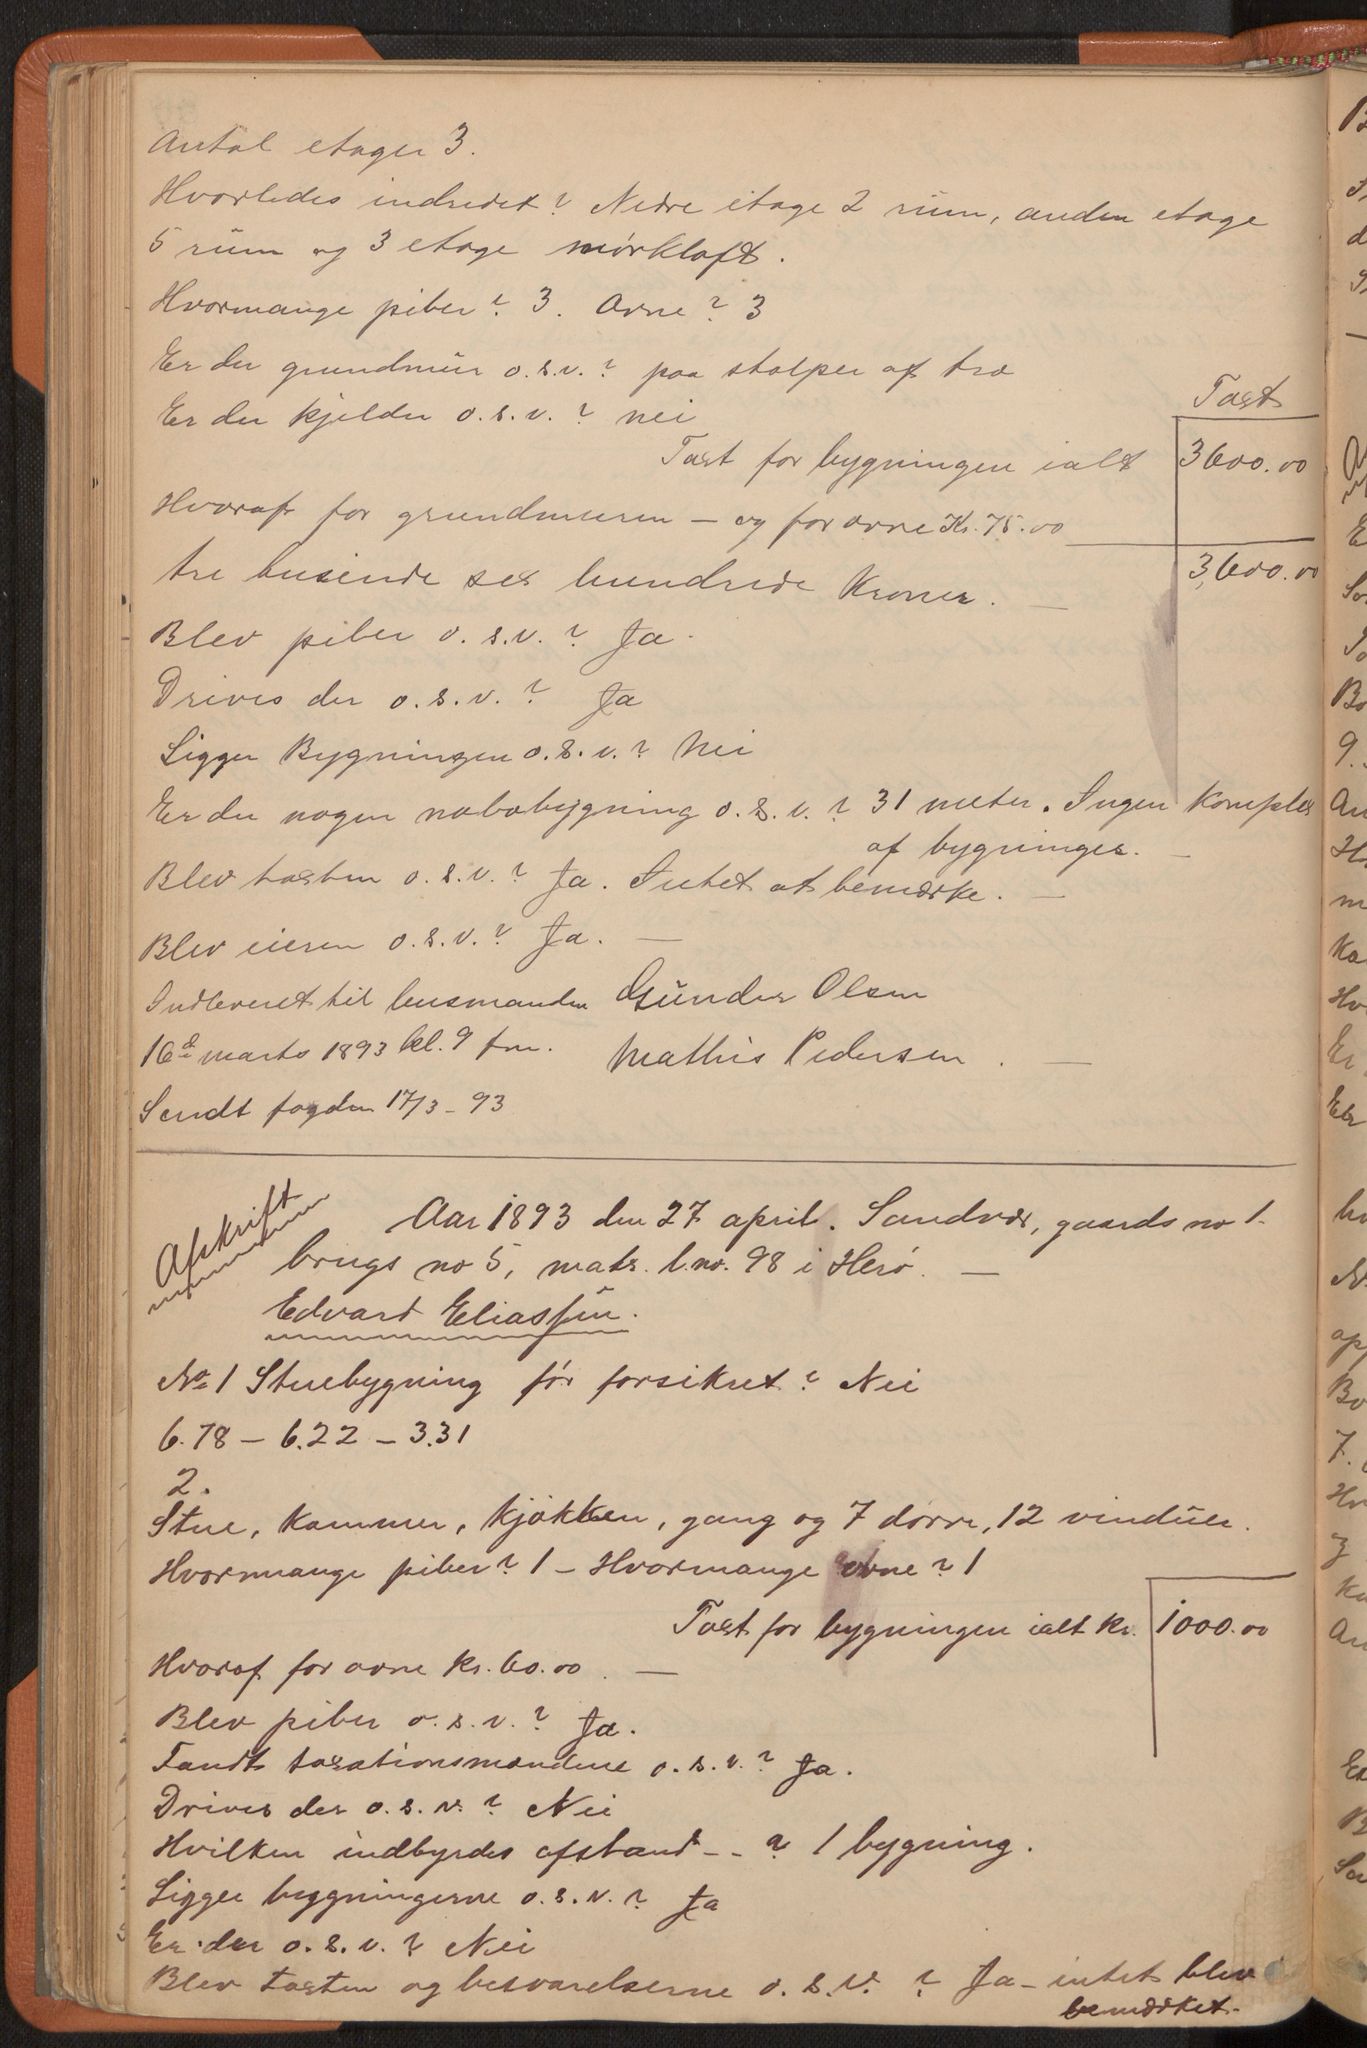 Antal etager 3.
Hvorledes indredet? Nedre etage 2 rum, anden etage
5 rum og 3 etage mörkloft.
Hvormange piber? 3. Ovne? 3
Er der grundmur o.s.v.? paa stolper af træ
Taxt
Er der kjelder o.s.v.? nei
Taxt for bygningen ialt 3600.00
Hvoraf for grundmuren — og for ovne Kr. 75.00
tre tusende sex hundrede Kroner. — 3,600.00
Blev piber o.s.v.? Ja.
Drives der o.s.v.? Ja
Ligger Bygningen o.s.v.? Nei
Er der nogen nabobygning o.s.v.? 31 meter. Ingen Komplex
af bygninger. —
Blev taxten o.s.v.? Ja. Intet at bemærke. —
Blev eieren o.s.v.? Ja. —
Indleveret til lensmanden Gunder Olsen
16de marts 1893 kl. 9 fm. Mathis Pedersen. —
Sendt fogden 17/3 - 93
Afskrift
Aar 1893 den 27 april. Sandvær, gaards no 1.
brugs no 5, matr. l.no. 98 i Herö. —
Edvard Eliassen.
No 1 Stuebygning för forsikret? Nei
6.78 — 6.22 — 3.31
2.
Stue, Kammer, Kjökken, gang og 7 dörre, 12 vinduer.
Hvormange piber? 1 — Hvormange ovne? 1
Taxt for bygningen ialt kr. 1000.00
Hvoraf for ovne kr. 60.00. —
Blev piber o.s.v.? Ja.
Fandt taxationsmændene o.s.v.? Ja.
Drives der o.s.v.? Nei
Hvilken indbyrdes afstand - - ? 1 bygning.
Ligger bygningerne o.s.v.? Ja
Er der o.s.v.? Nei
Blev taxten og besvarelserne o.s.v.? Ja — intet blev
bemærket.